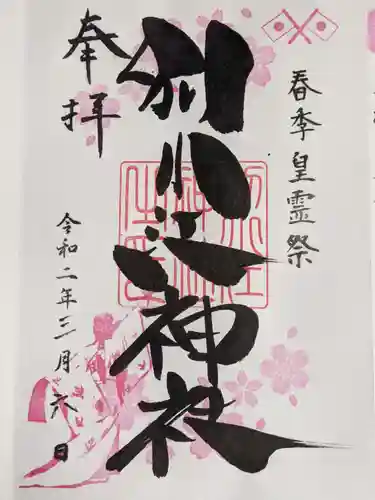 春季皇霊祭
別小江神社
奉拝
令和二年三月六日